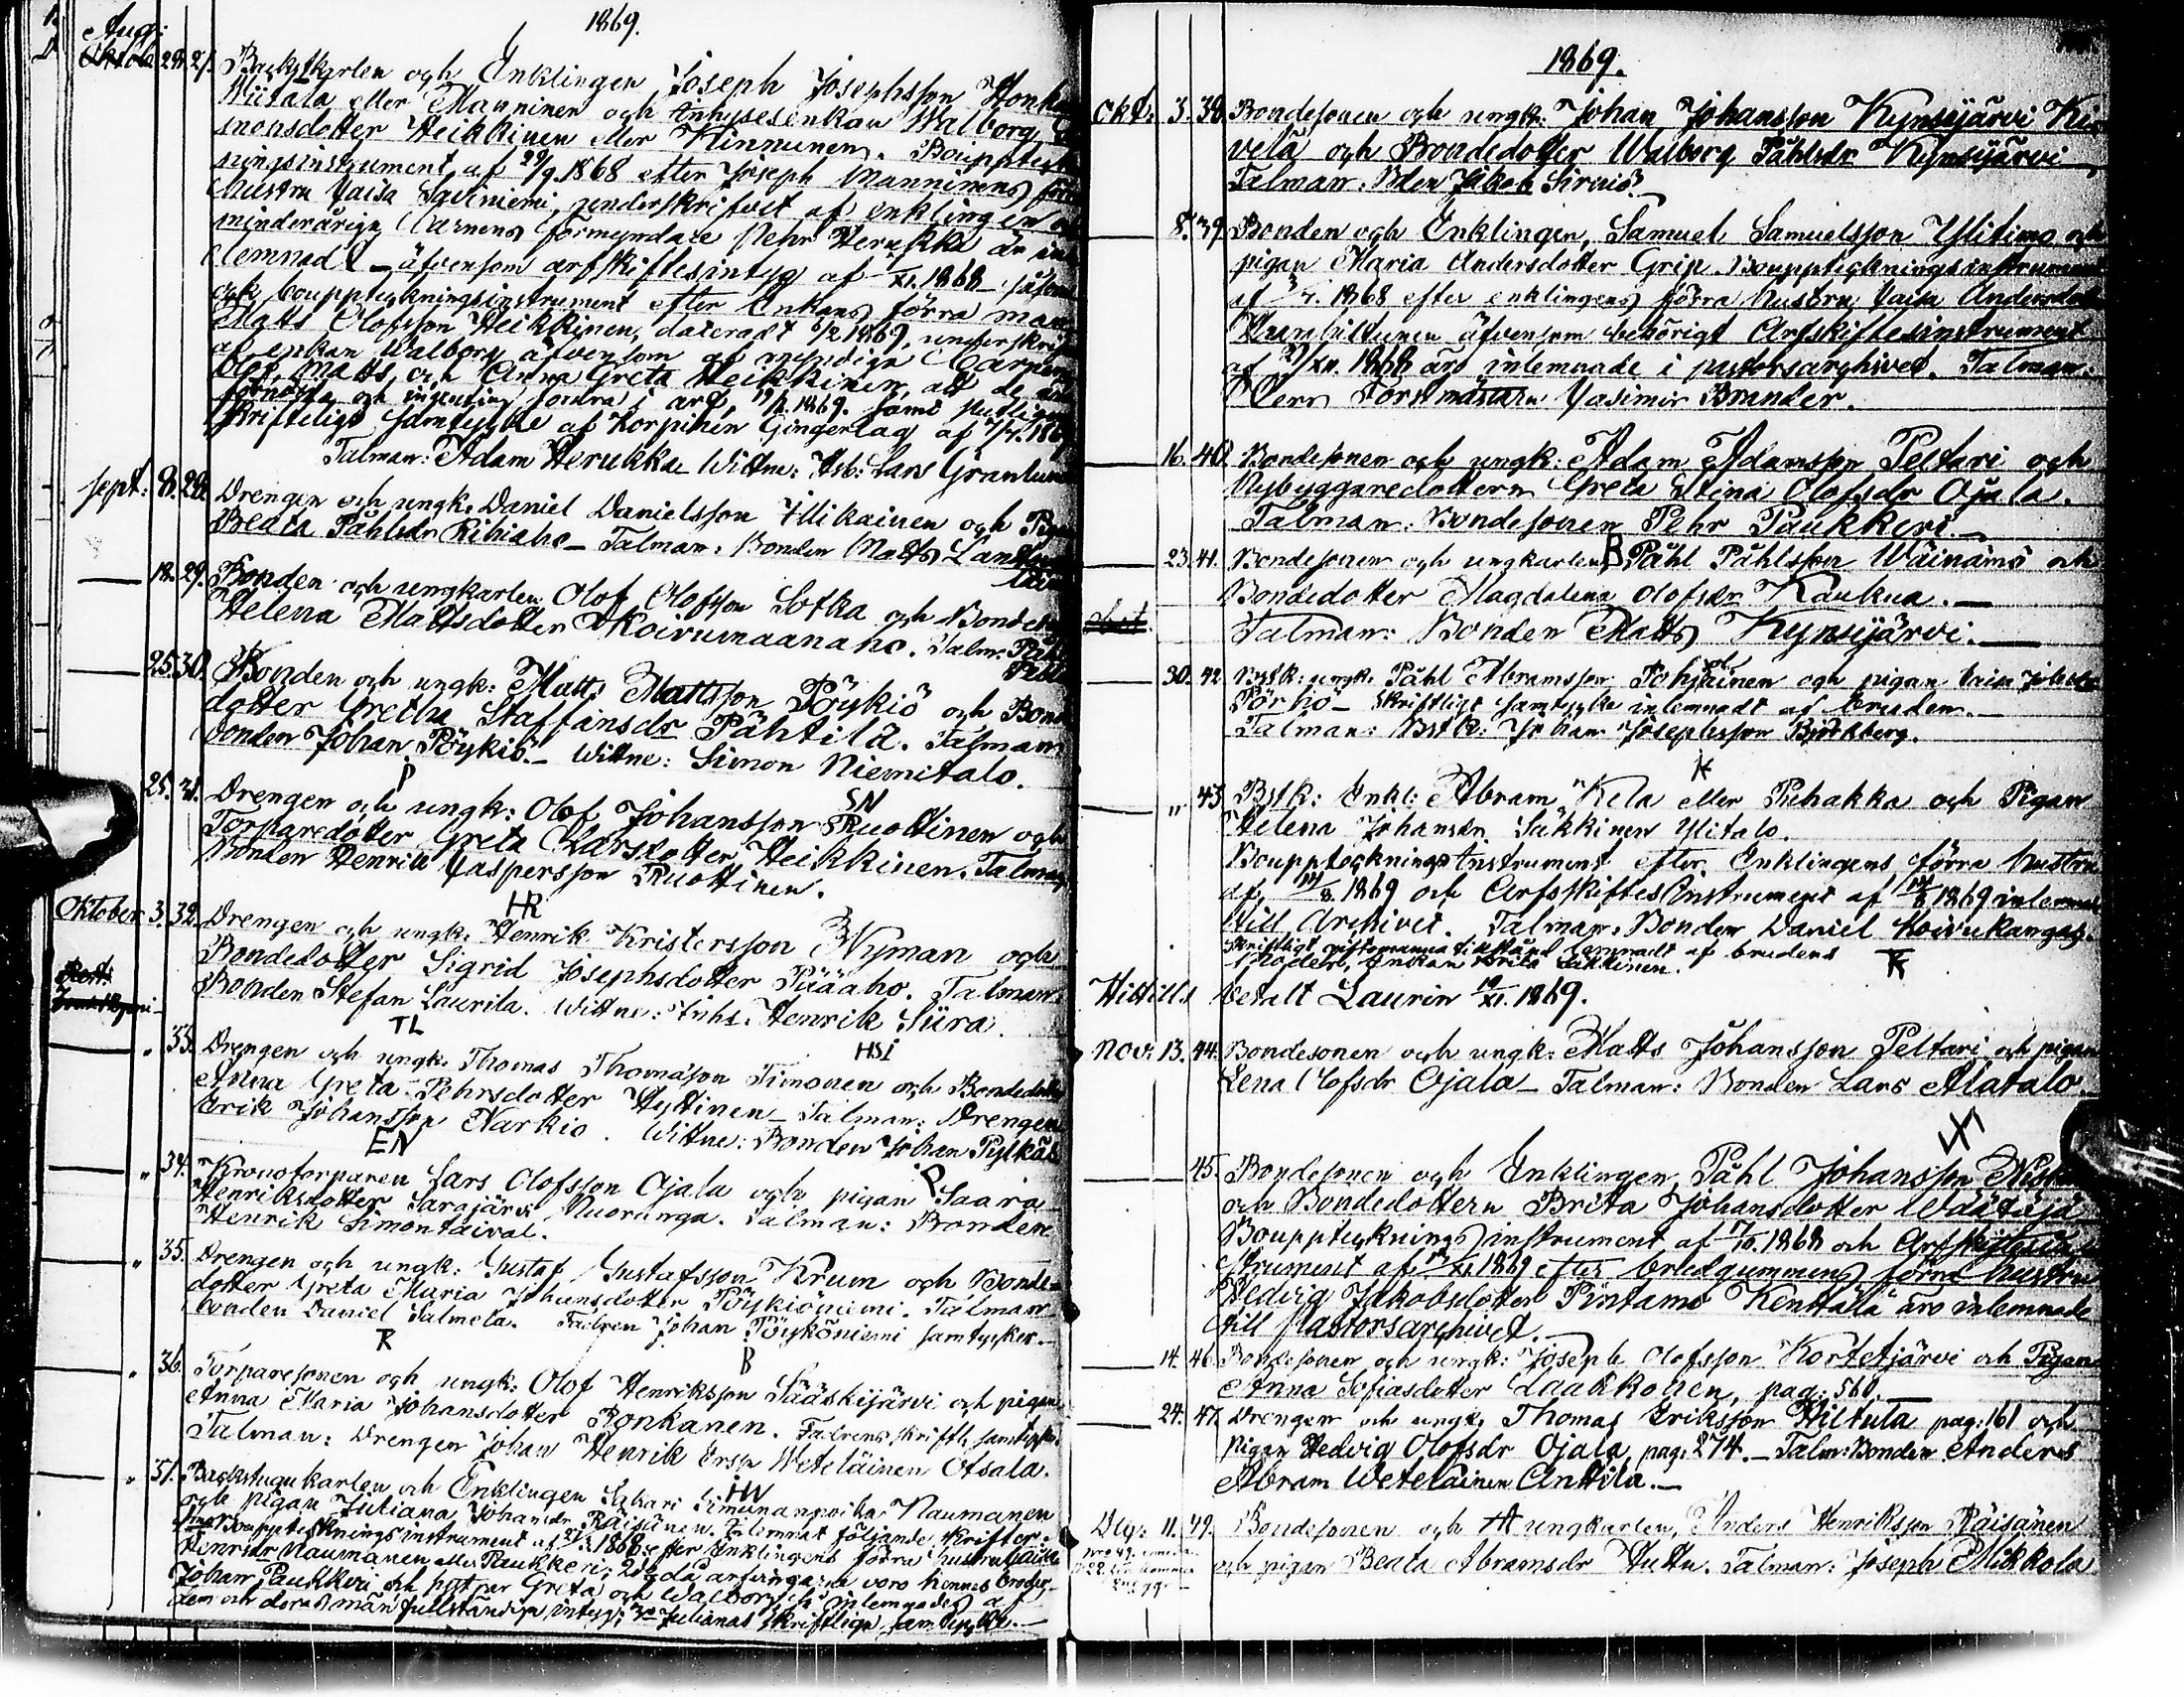 1869.
Aug:
28. 27. Backstkarlen och Enklingen Joseph Josephsson Honka
Niitala eller Manninen och Inhysesenkan Walborg
monsdotter Heikkinen eller Kinnunen. Bouppteck
ningsinstrument af 29/9. 1868 efter Joseph Manninens förra
hustru Caisa Saviniemi, underskrifvet af enklingen o
minderåriga barnens förmyndare Pehr Herukka är in
lemnadt – äfvensom arfskiftesintyg af XI. 1868 – såsom
ock bouppteckningsinstrument efter Enkans förra man
Matts Olofsson Heikkinen, dateradt 6/2 1869, underskrif
af enkan Walborg äfvensom af myndiga barnen
Olof, Matts, och Anna Greta Heikkinen, att de äro
förnöjda och ingenting fordra i arf, 19/2. 1869. samt
skriftelige samtycke af Korpinen Gingerlag af
Talman: Adam Herukka Wittne: Hsb: Lars Granlund
sept: 8. 28. Drengen och ungk. Daniel Danielsson Illikainen och Pigan
Beata Påhlsdr Ribiaho – Talman: Bonden Matts
18. 29. Bonden och ungkarlen Olof Olofsson Sotka och Bonded
Helena Mattsdotter Koivumaanaho. Talm: Pehr
25. 30. Bonden och ungk: Matts Mattsson Pöykiö och Bonde
dotter Gretha Staffansdr Pähtilä. Talman:
bonden Johan Pöykiö. – Wittne: Simon Niemitalo.
P
25. 31. Drengen och ungk: Olof Johansson Ruottinen och
SN
Torparedotter Greta Larsdotter Heikkinen. Talman
Bonden Henrik Caspersson Ruottinen.
HR
Oktober 3. 32. Drengen och ungk. Henrik Kristersson Nyman och
Bondedotter Sigrid Josephsdotter Pääaho. Talman:
Bonden Stefan Laurila. Wittne: Inhs. Henrik Siira.
TL HSi
" 33. Drengen och ungk. Thomas Thomasson Timonen och Bondedotter
Anna Greta Pehrsdotter Hyttinen – Talman: Drengen
Erik Johansson Narkio. Wittne: Bonden Johan Pylkäs
EN P
" 34. Kronotorparen Lars Olofsson Ojala och pigan Saara
Henriksdotter Sarajärvi Nuorunga. Talman: Bonden
Henrik Simontaival.
" 35. Drengen och ungk: Gustaf Gustafsson Krum och Bonde-
dotter Greta Maria Johansdotter Pöykiöniemi. Talman
bonden Daniel Salmela. Fadren Johan Pöyköniemi samtycker. –
R B
" 36. Torparesonen och ungk: Olof Henriksson Sääskijärvi och pigan
Anna Maria Johansdotter Ronkanen. Fadrens skriftl. samtycke.
Talman: Drengen Johan Henrik Ersn Weteläinen Otsala.
HN
" 37. Backstugukarlen och Enklingen Sakari Simunanpoika Naumanen
och pigan Juliana Johansdr Räisänen. Inlemnat följande skrifter:
Bouppteckningsinstrument af 1868 efter Enklingens förra hustru Caisa
Henriksdr Naumanen eller Raukkeri; 2) då arfvingarne voro hennes broder
Johan Paukkeri och systrar Greta och Walborg, inlemnades af
dem och deras män fullständiga intyg; 3) Julianas skriftliga samtycke. –
1869.
Okt: 3. 38. Bondesonen och ungk: Johan Johansson Kynsijärvi Ki
velä och Bondedotter Walborg Påhlsdr Kynsijärvi
Talman: Bden Jakob Sirniö. –
8. 39. Bonden och Enklingen, Samuel Samuelsson Ylitimo och
pigan Maria Andersdotter Grip. Bouppteckningsinstrument
af 1868 efter enklingens förra hustru Caisa Andersdotter
äfvensom behörigt Arfskiftesinstrument
af XII. 1868 äro inlemnade i pastorsarchivet. Talman:
Herr Forstmästarn Casimir Brander.
16. 40. Bondesonen och ungk: Adam Adamsson Peltari och
Nybyggaredottern Greta Stina Olofsdr Ojala.
Talman: Bondesonen Pehr Paukkeri. –
23. 41. Bondesonen och ungkarlen Påhl Påhlsson Wäinämö och
Bondedotter Magdalena Olofsdr Kaukua. –
Talman: Bonden Matts Kynsijärvi. –
30. 42. Bstk: ungk. Påhl Abramsson Pohjolainen och pigan Caisa
Pörhö – Skriftligt samtycke inlemnadt af bruden. –
Talman: Bstk: Johan Josephsson Björkberg.
K
" 43. Bstk: Enkl: Abram Kela eller Puhakka och Pigan
Helena Johansdr Säkkinen Ylitalo.
Bouppteckningsinstrument efter Enklingens förra hustru
af 14/8. 1869 och Arfskiftesinstrument af 14/8 1869 inlemnade
till Archivet. Talman: Bonden Daniel Koivukangas.
Skriftligt giftomanna tillstånd lemnadt af brudens
Moder, Enkan Brita Säkkinen. K
Hittills betalt Laurin 10/XI. 1869.
Nov: 13. 44. Bondesonen och ungk: Matts Johansson Peltari och pigan
Lena Olofsdr Ojala – Talman: Bonden Lars Alatalo.
45. Bondesonen och Enklingen, Påhl Johansson
och Bondedottern Brita Johansdotter Määttäjä
Bouppteckningsinstrument af 17/10. 1868 och Arfskiftesin
strument af 1869 efter brudgummens förra hustru
Hedvig Jakobsdotter Pintamo Kenttälä äro inlemnade
till Pastorsarchivet. –
14. 46. Bondesonen och ungk: Joseph Olofsson Kortetjärvi och Pigan
Anna Sofiasdotter Laakkonen, pag. 560. –
24. 47. Drengen och ungk. Thomas Eriksson Hiltula pag. 161 och
Pigan Hedvig Olofsdr Ojala, pag. 274. – Talm: Bonden Anders
Abram Weteläinen Anttila. –
Dec: 11. 49. Bondesonen och ungkarlen, Anders Henriksson Räisänen
och pigan Beata Abramsdr Huttu. Talman: Joseph Mikkola